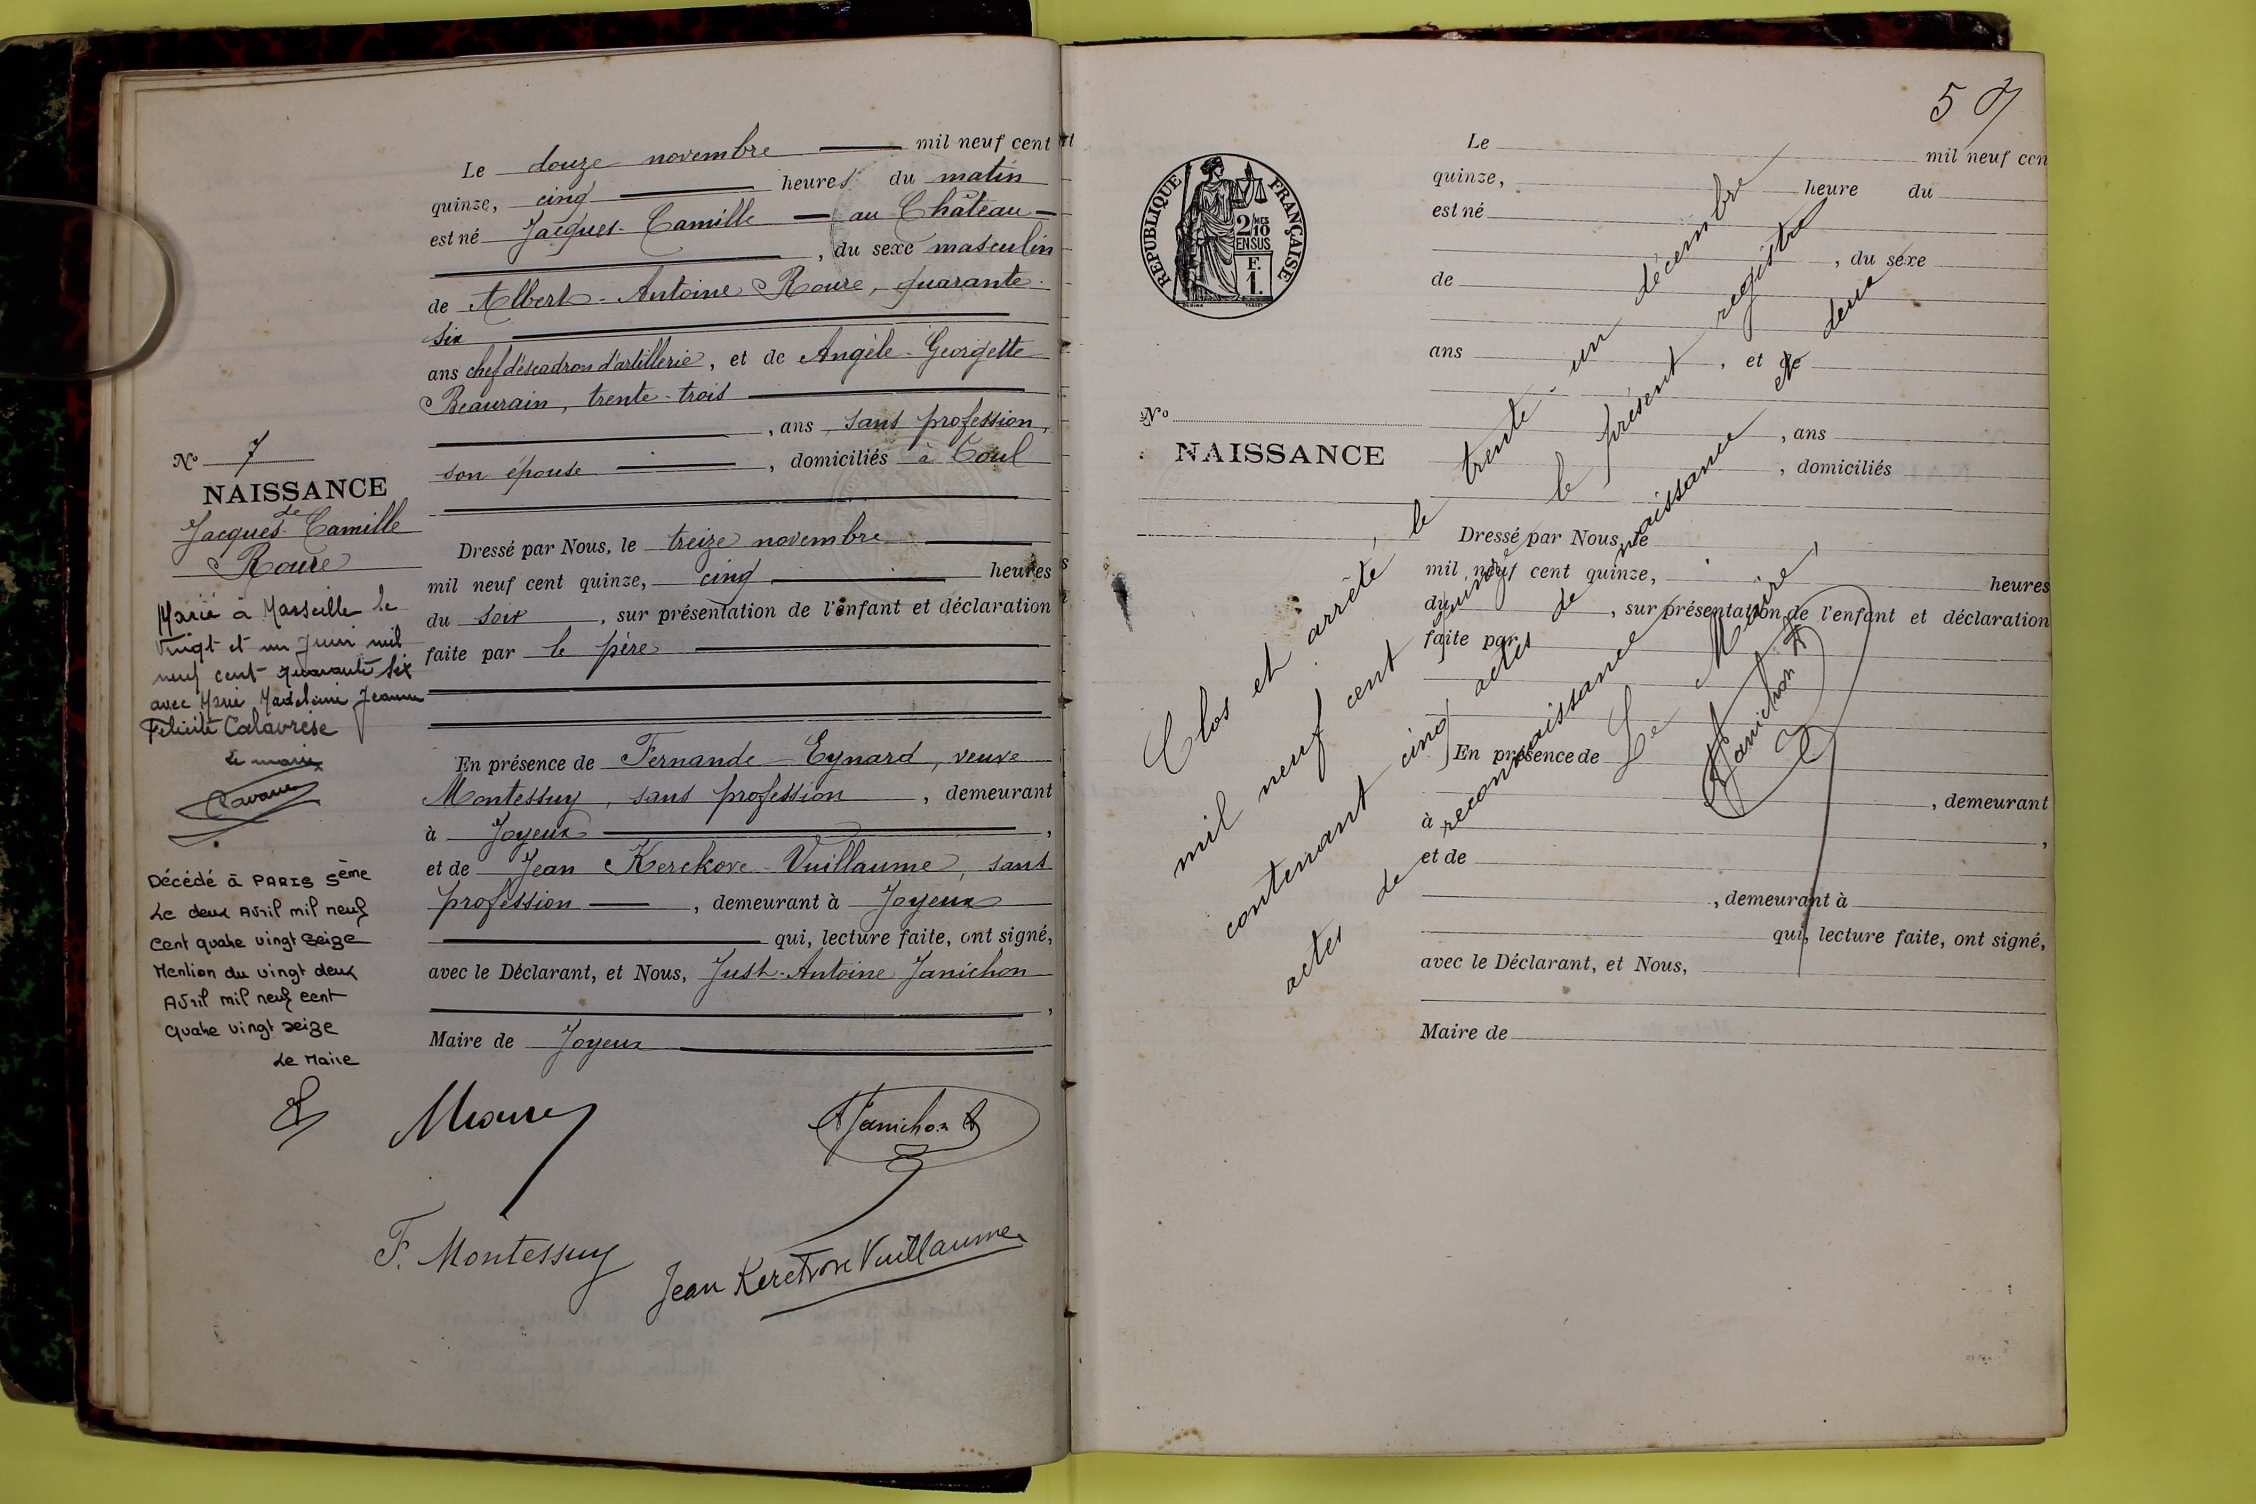 Le douze novembre mil neuf cent
quinze, cinq heures du matin
est né Jacques-Camille au Château
, du sexe masculin
de Albert-Antoine Roure, quarante-
six
ans chef d'escadron d'artillerie, et de Angèle-Georgette
Beaurain, trente-trois
, ans sans profession,
son épouse , domiciliés à Toul
Dressé par Nous, le treize novembre
mil neuf cent quinze, cinq heures
du soir , sur présentation de l'enfant et déclaration
faite par le père
En présence de Fernande Eynard, veuve
Montessuy, sans profession , demeurant
à Joyeux ,
et de Jean Kerckove-Vuillaume, sans
profession , demeurant à Joyeux
qui, lecture faite, ont signé,
avec le Déclarant, et Nous, Just-Antoine Janichon
,
Maire de Joyeux
No 7
NAISSANCE
de
Jacques-Camille
Roure
Marié à Marseille le
Vingt et un Juin mil
neuf cent quarante six
avec Marie Madeleine Jeanne
Félicité Calavrèse
Le maire
Décédé à PARIS 5ème
Le deux Avril mil neuf
cent quatre vingt seize
Mention du vingt deux
Avril mil neuf cent
quatre vingt seize
Le Maire
Janichon
F. Montessuy
Jean Kerckove Vuillaume
5
RÉPUBLIQUE FRANÇAISE
2/10
EN SUS
F.
1.
Le mil neuf cen
quinze, heure du
est né
, du sexe
de
ans , et de
No
NAISSANCE
, ans
, domiciliés
Dressé par Nous, le
mil neuf cent quinze, heures
du , sur présentation de l'enfant et déclaration
faite par
En présence de
, demeurant
à ,
et de
, demeurant à
qui, lecture faite, ont signé,
avec le Déclarant, et Nous,
Maire de
Clos et arrêté, le trente-un décembre
mil neuf cent quinze, le présent registre
contenant cinq actes de naissance et deux
actes de reconnaissance
Le Maire,
Janichon